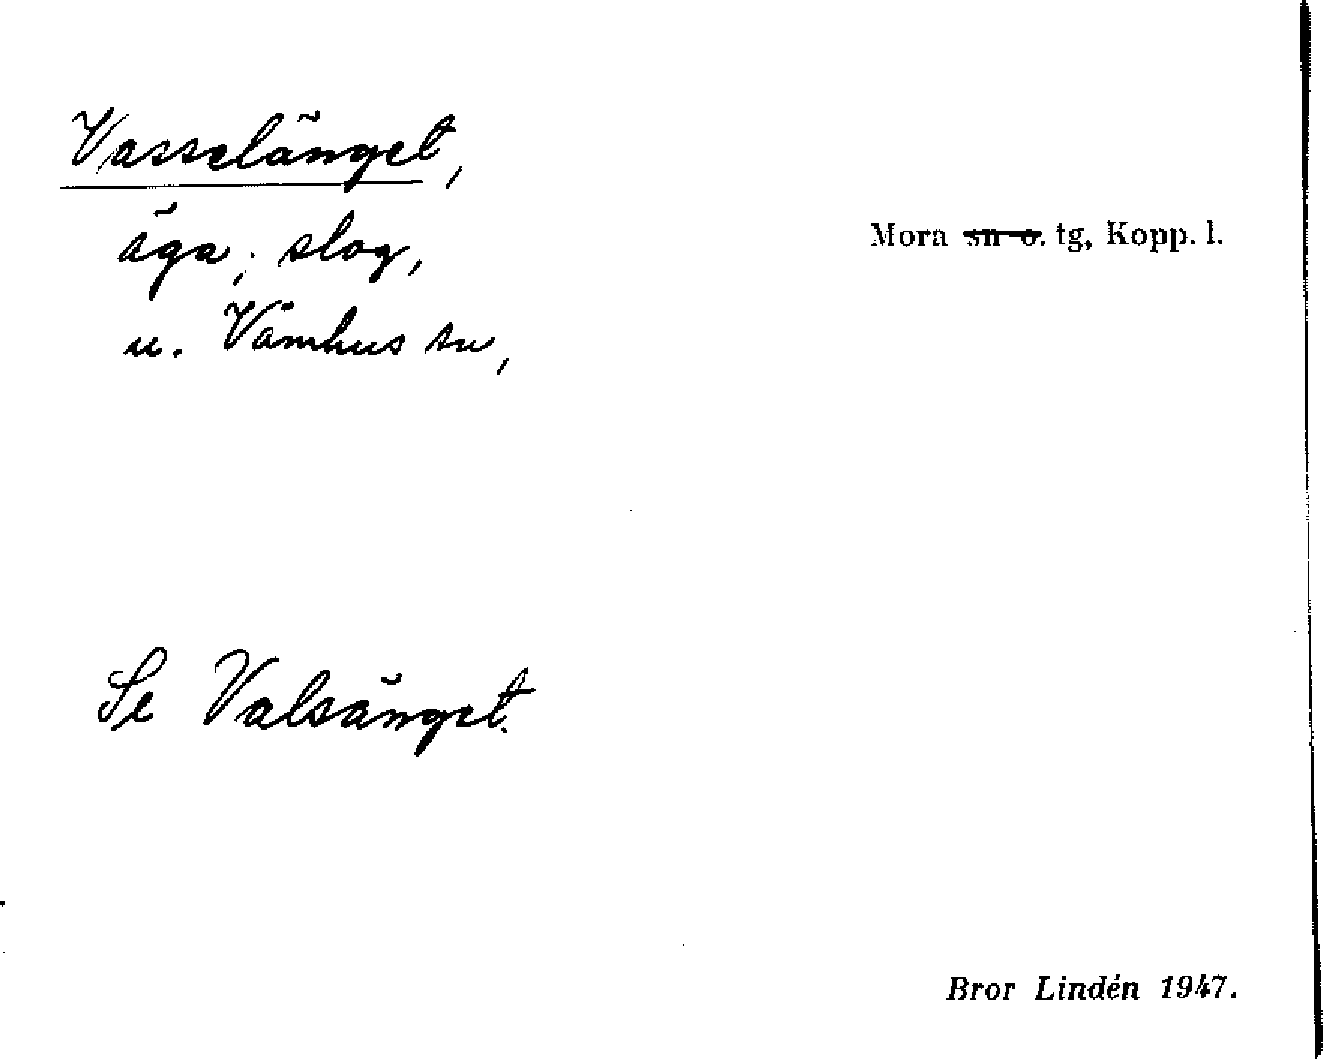 Vasselänget,
äga, slog,
Mora sn o. tg, Kopp. l.
u. Våmhus sn,
Se Valsänget.
Bror Lindén 1947.